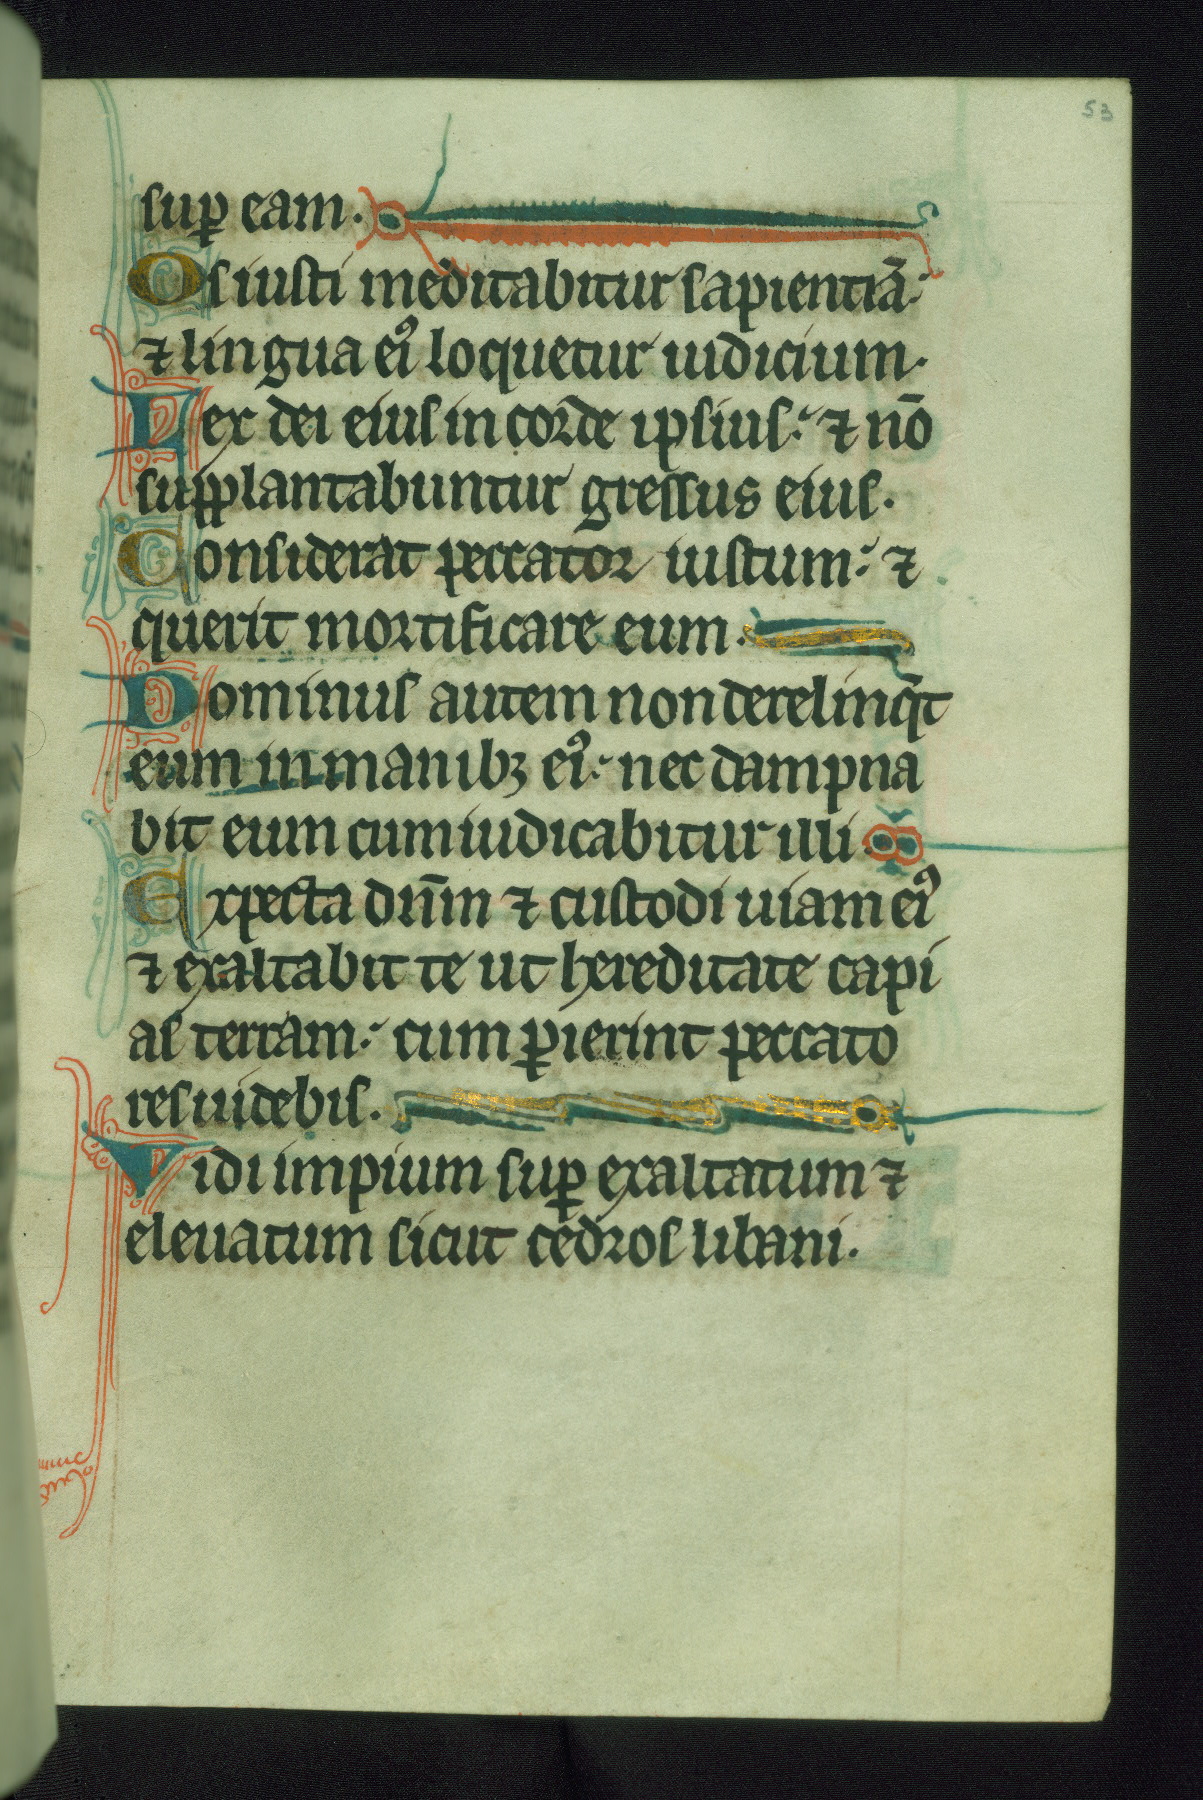 53
suꝑ eam.
Os iusti meditabitur sapientiā:
⁊ lingua eiꝰ loquetur iudicium.
Lex dei eius in corde ipsius: ⁊ nō
supplantabuntur gressus eius.
Considerat peccator iustum: ⁊
querit mortificare eum.
Dominus autem non derelinq̄t
eum in manibꝫ eiꝰ: nec dampna
bit eum cum iudicabitur illi.
Expecta dn̄m ⁊ custodi uiam eiꝰ
⁊ exaltabit te ut hereditate capi
as terram: cum ꝑierint peccato
res uidebis.
Vidi impium suꝑ exaltatum ⁊
eleuatum sicut cedros libani.